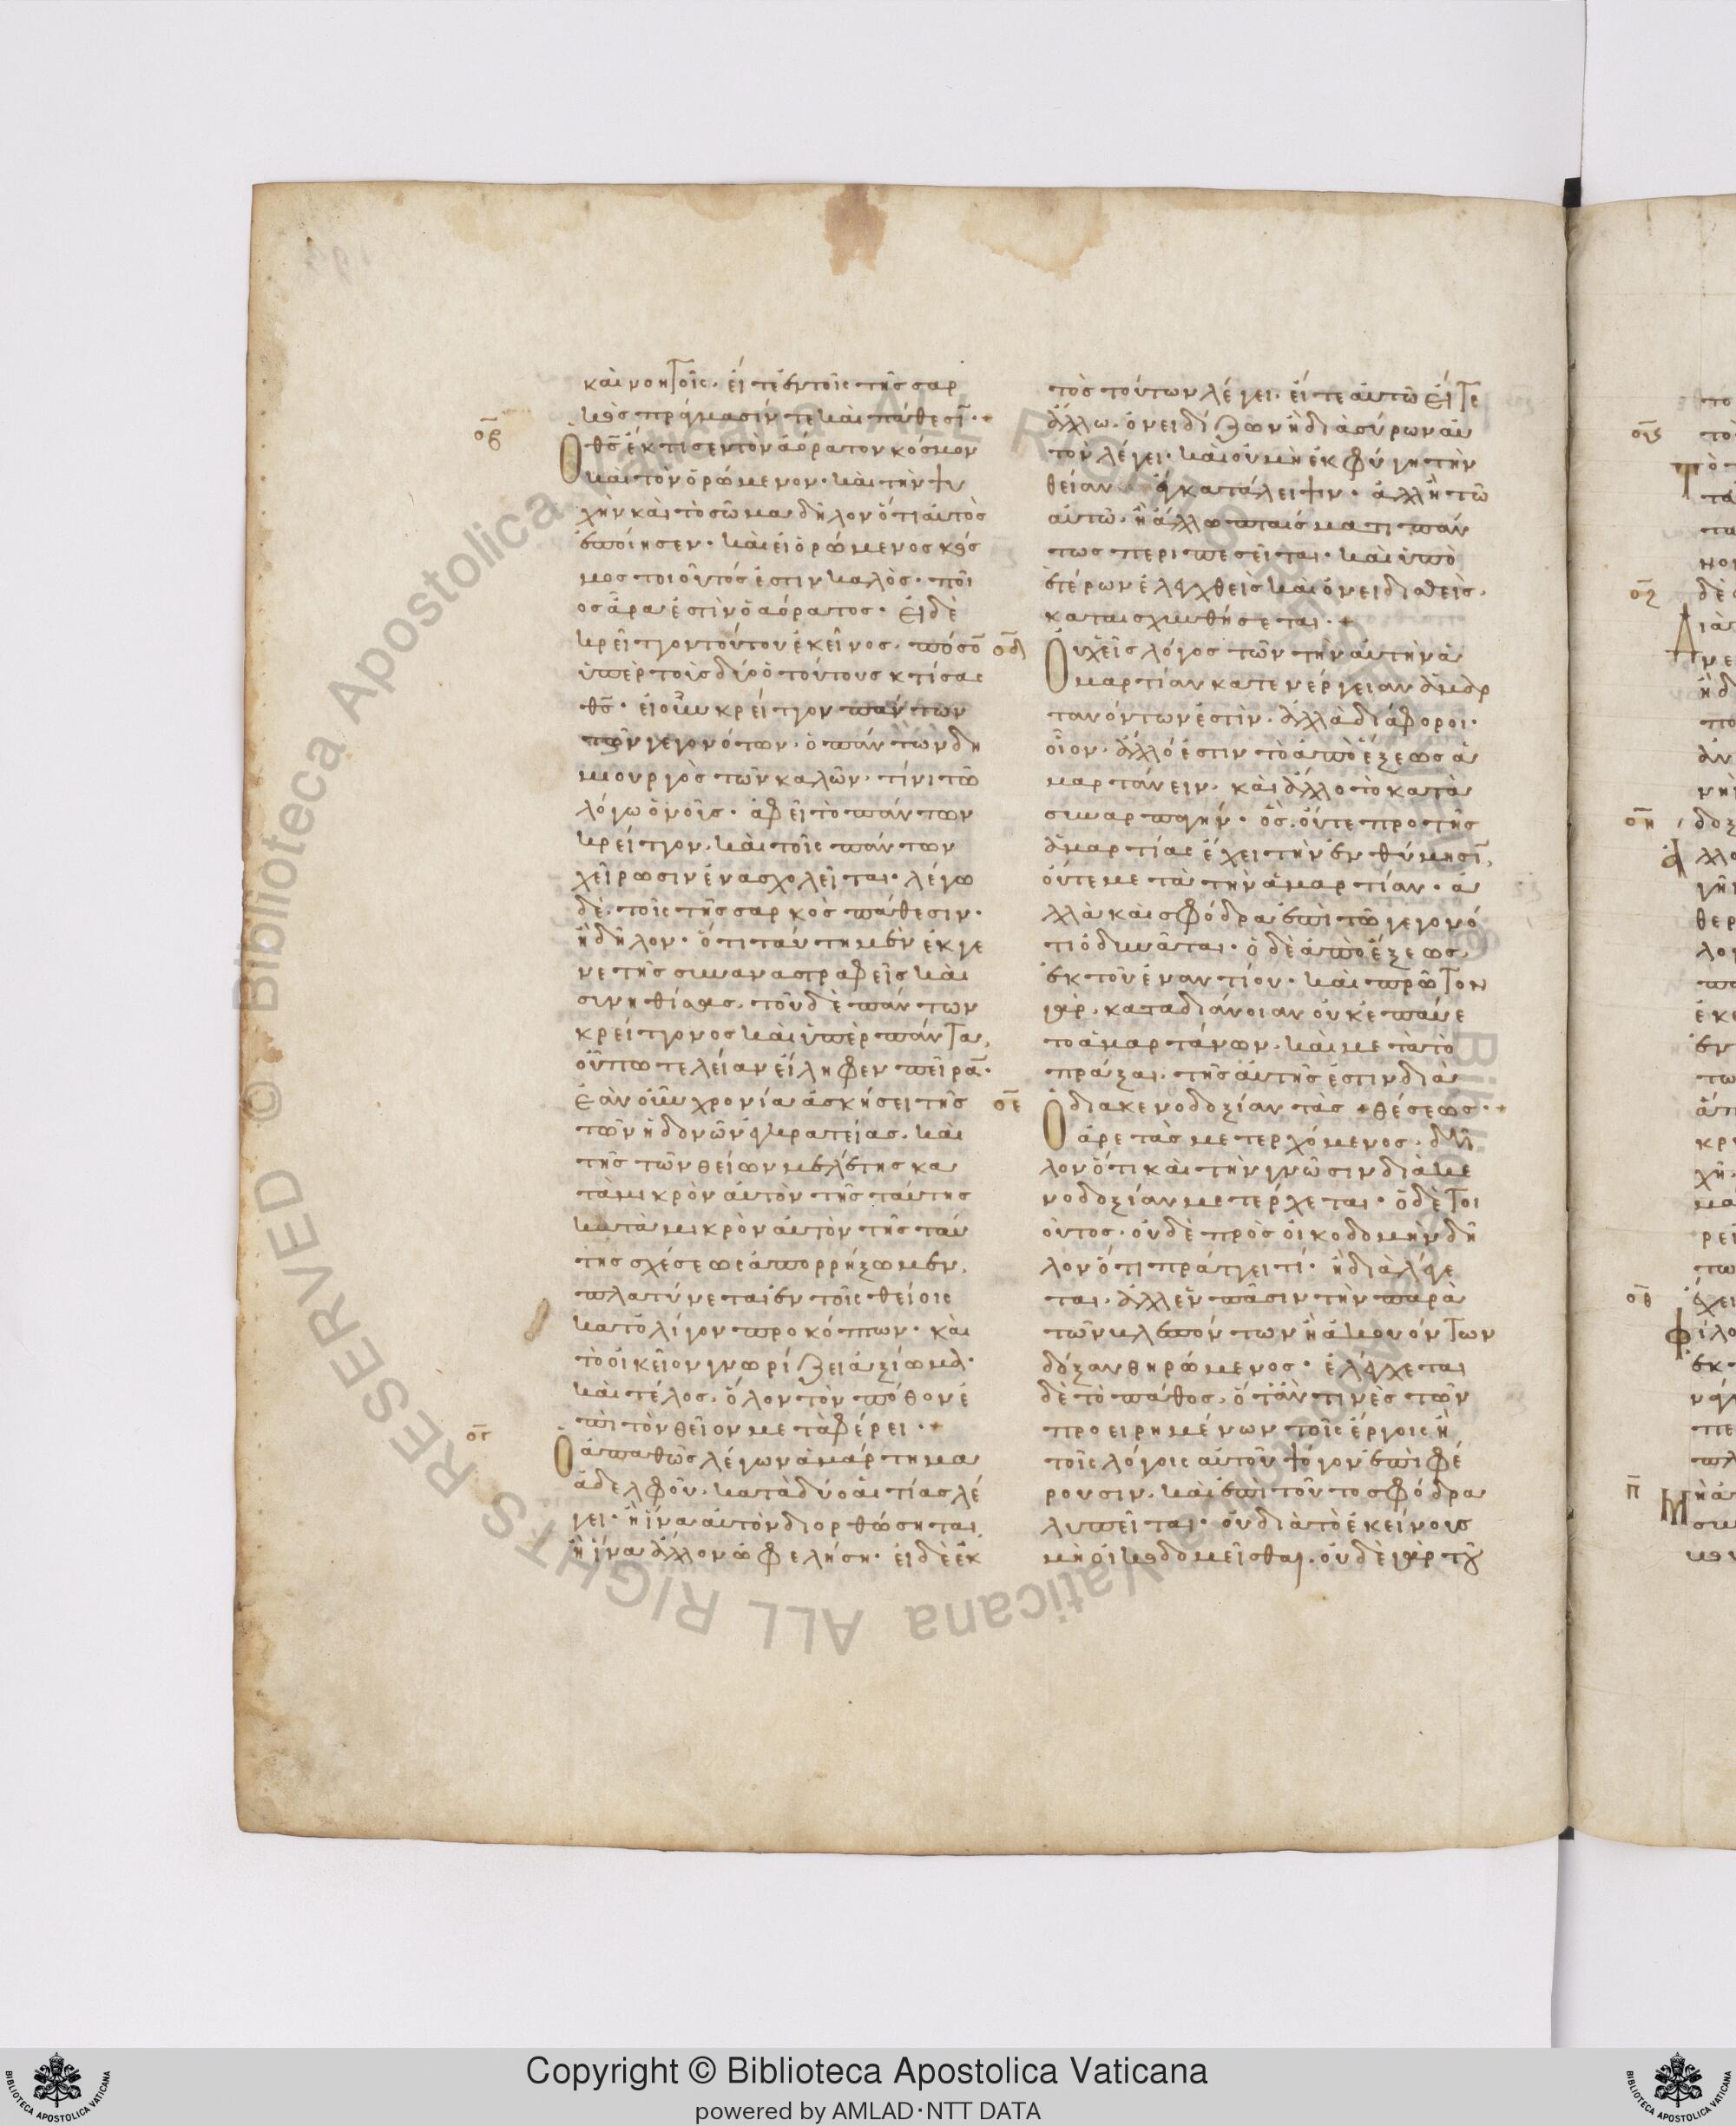 καὶ νοητοῖς. εἴτε ἐν τοῖς τῆς σαρ
κὸς πράγμασίν τε καὶ πάθεσῑ·
οβ
Ὁ θ̅ς̅ ἔκτισεν τὸν ἀόρατον κόσμον
καὶ τὸν ὁρώμενον. καὶ τὴν ψυ
χὴν καὶ τὸ σῶμα δῆλον ὅτι αὐτὸς
ἐποίησεν. καὶ εἰ ὁ ὁρώμενος κόσ
μος τοιοῦτός ἐστιν καλὸς. ποῖ
ος ἄρα ἐστὶν ὁ ἀόρατος. εἰ δὲ
κρεῖττον τούτου ἐκεῖνος. πόσο̅
ὑπὲρ τοὺς δύο ὁ τούτους κτίσας
θ̅ς̅. εἰ οὖν κρεῖττον πάντων
τῶν γεγονότων. ὁ πάντων δη
μιουργὸς τῶν καλῶν. τίνι τῶ
λόγω ὁ νοῦς. ἀφεὶς τὸ πάντων
κρεῖττον. καὶ τοῖς πάντων
χείρωσιν ἐνασχολεῖται. λέγω
δὲ. τοῖς τῆς σαρκὸς πάθεσιν.
ἢ δῆλον. ὅτι ταύτη μὲν ἐκ γε
νετῆς συναναστραφεὶς καὶ
συνηθίσας. τοῦ δὲ πάντων
κρείττονος καὶ ὑπὲρ πάντα,
οὔπω τελείαν εἴληφεν πεῖρα̅.
ἐὰν οὖν χρονία ἀσκήσει τῆς
τῶν ἡδονῶν ἐγκρατείας. καὶ
τῆς τῶν θείων μελέτης κα
τὰ μικρὸν αὐτὸν τῆς ταύτης
κατὰ μικρὸν αὐτὸν τῆς ταύ
της σχέσεως ἀπορρήξωμεν,
πλατύνεται ἐν τοῖς θείοις
κατ ὀλίγον προκόπτων. καὶ
τὸ οἰκεῖον γνωρίζει ἀξίωμα.
καὶ τέλος. ὅλον τὸν πόθον ἐ
πὶ τὸν θεῖον μεταφέρει·
ογ
Ὁ ἀπαθῶς λέγων ἁμάρτημα
ἀδελφοῦ. κατὰ δύο αἰτίας λέ
γει. ἢ ἵνα αὐτὸν διορθώσηται,
ἢ ἵνα ἄλλον ὠφελήση. εἰ δὲ ἐκ
τὸς τούτων λέγει. εἴτε αὐτῶ εἴτε
ἄλλω. ὀνειδίζων ἢ διασύρων αὐ
τὸν λέγει. καὶ οὐ μὴ ἐκφύγη τὴν
θείαν ἐγκατάλειψιν. ἀλλ ἢ τῶ
αὐτῶ. ἢ ἄλλω πταίσματι πάν
τως περιπεσεῖται. καὶ ὑπὸ
ἑτέρων ἐλεγχθεὶς καὶ ὀνειδισθεὶς.
καταισχυνθήσεται·
οδ
Οὐχ εἷς λόγος τῶν τὴν αὐτὴν ἁ
μαρτίαν κατ ενέργειαν ἁμαρ
τανόντων ἐστὶν. ἀλλὰ διάφοροι.
οἷον. ἄλλό ἐστιν τὸ ἀπὸ ἕξεως ἁ
μαρτάνειν. καὶ ἄλλο τὸ κατὰ
συναρπαγήν. ὃς. οὔτε πρὸ τῆς
ἁμαρτίας ἔχει τὴν ἐνθύμησῑ,
οὔτε μετὰ τὴν ἁμαρτίαν. ἀ
λλὰ καὶ σφόδρα ἐπὶ τῶ γεγονό
τι ὀδυνᾶται. ὁ δὲ ἀπὸ ἕξεως.
ἐκ τοῦ ἐναντίου. καὶ πρῶτον
γὰρ. κατα διάνοιαν οὐκ ἐπαύε
το ἁμαρτάνων. καὶ μετὰ τὸ
πράξαι. τῆς αὐτῆς ἐστιν δια
θέσεως·
οε
Ὁ διὰ κενοδοξίαν τὰς
ἀρετὰς μετερχόμενος. δῆ
λον ὅτι καὶ τὴν γνῶσιν διὰ κε
νοδοξίαν μετέρχεται. ὁ δὲ τοι
οῦτος. οὐδὲ πρὸς οἰκοδομὴν δῆ
λον ὅτι πράττει τί. ἢ διαλέγε
ται. ἀλλ ἐν πᾶσιν τὴν παρὰ
τῶν βλεπόντων ἢ ἀκουόντων
δόξαν θηρώμενος. ἐλέγχεται
δὲ τὸ πάθος. ὅτ ἄν τινὲς τῶν
προειρημένων τοῖς ἔργοις ἢ
τοῖς λόγοις αὐτοῦ ψόγον ἐπιφέ
ρουσιν. καὶ ἐπὶ τοῦτο σφόδρα
λυπεῖται. οὐ διὰ τὸ ἐκείνους
μὴ οἰκοδομεῖσθαι. οὐδὲ γὰρ τοῦ
οϛ
οζ
οη
οθ
π
Copyright © Biblioteca Apostolica Vaticana
powered by AMLAD·NTT DATA